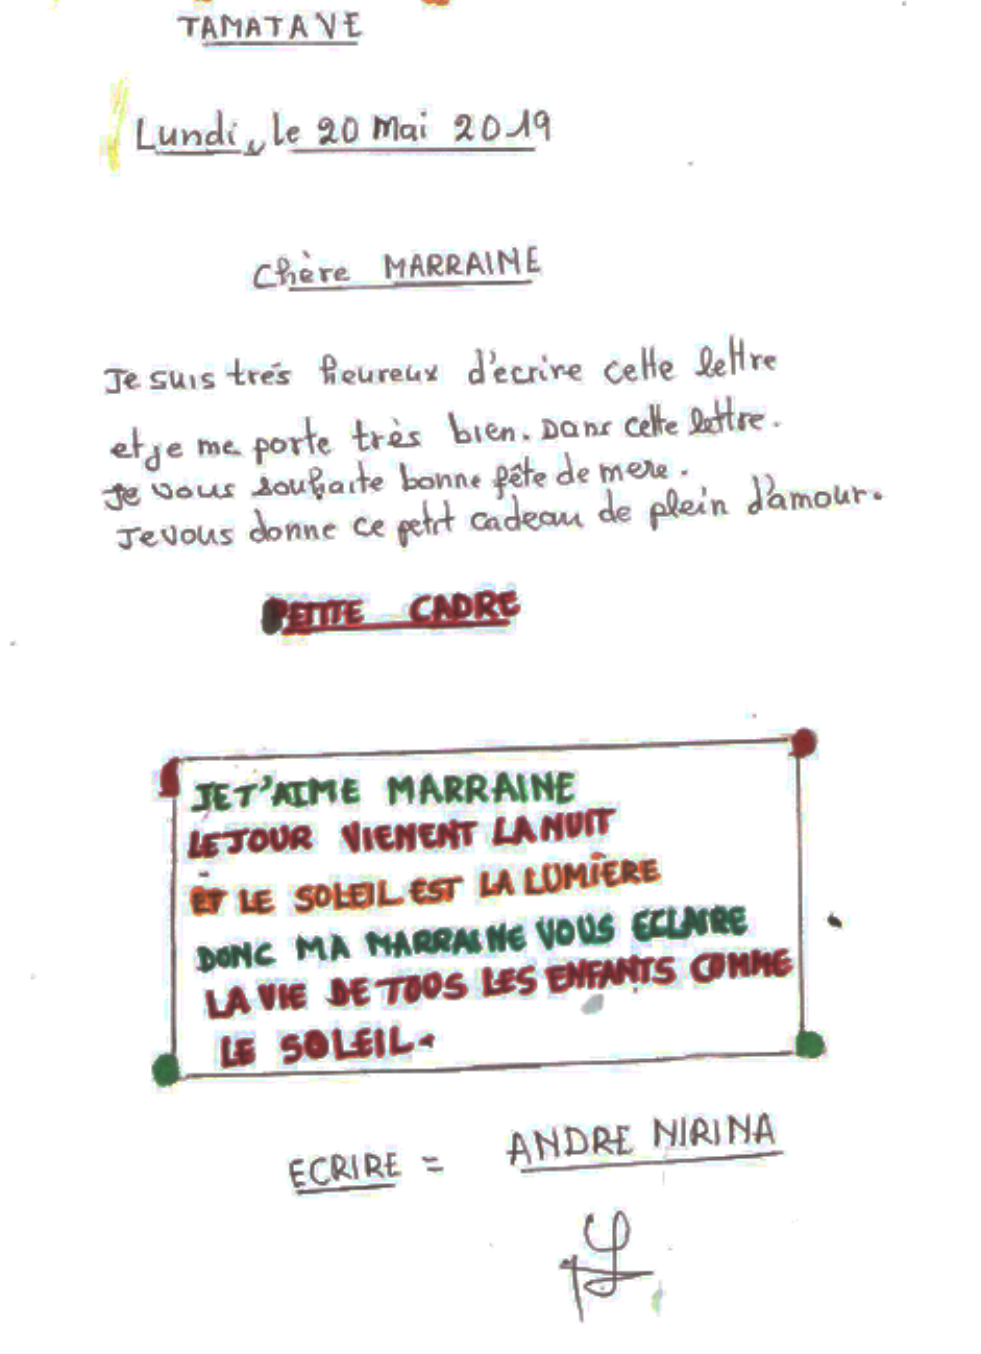 TAMATAVE
Lundi, le 20 Mai 2019
Chère MARRAINE
Je suis trés heureux d'écrire cette lettre
et je me porte très bien. Dans cette lettre.
Je vous souhaite bonne fête de mere.
Je vous donne ce petit cadeau de plein d'amour.
PETITE CADRE
JE T'AIME MARRAINE
LE JOUR VIENENT LA NUIT
ET LE SOLEIL EST LA LUMIÈRE
DONC MA MARRAINE VOUS ECLAIRE
LA VIE DE TOOS LES ENFANTS COMME
LE SOLEIL.
ECRIRE = ANDRE NIRINA